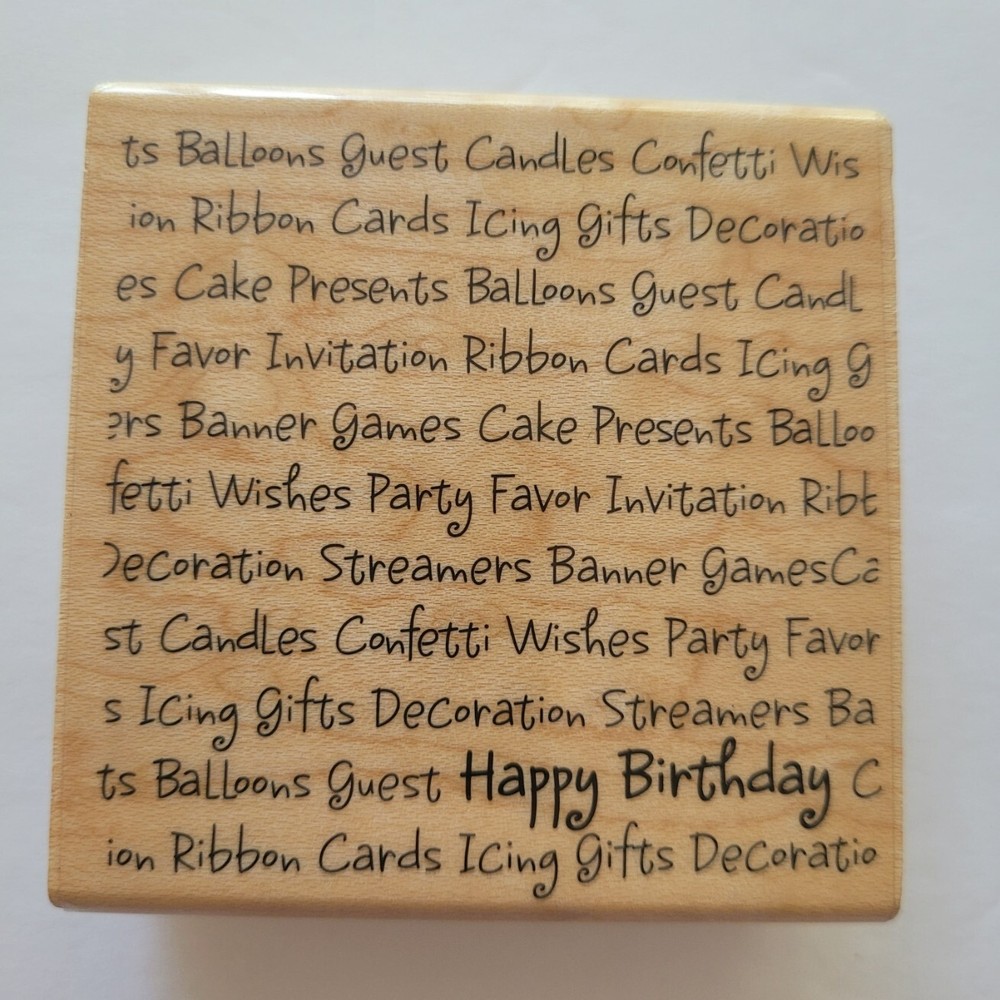 ts Balloons Guest Candles Confetti Wis
ion Ribbon Cards Icing Gifts Decoratio
es Cake Presents Balloons Guest Candl
y Favor Invitation Ribbon Cards Icing G
ers Banner Games Cake Presents Balloo
fetti Wishes Party Favor Invitation Ribb
Decoration Streamers Banner GamesCa
st Candles Confetti Wishes Party Favor
s Icing Gifts Decoration Streamers Ba
ts Balloons Guest Happy Birthday C
ion Ribbon Cards Icing Gifts Decoratio